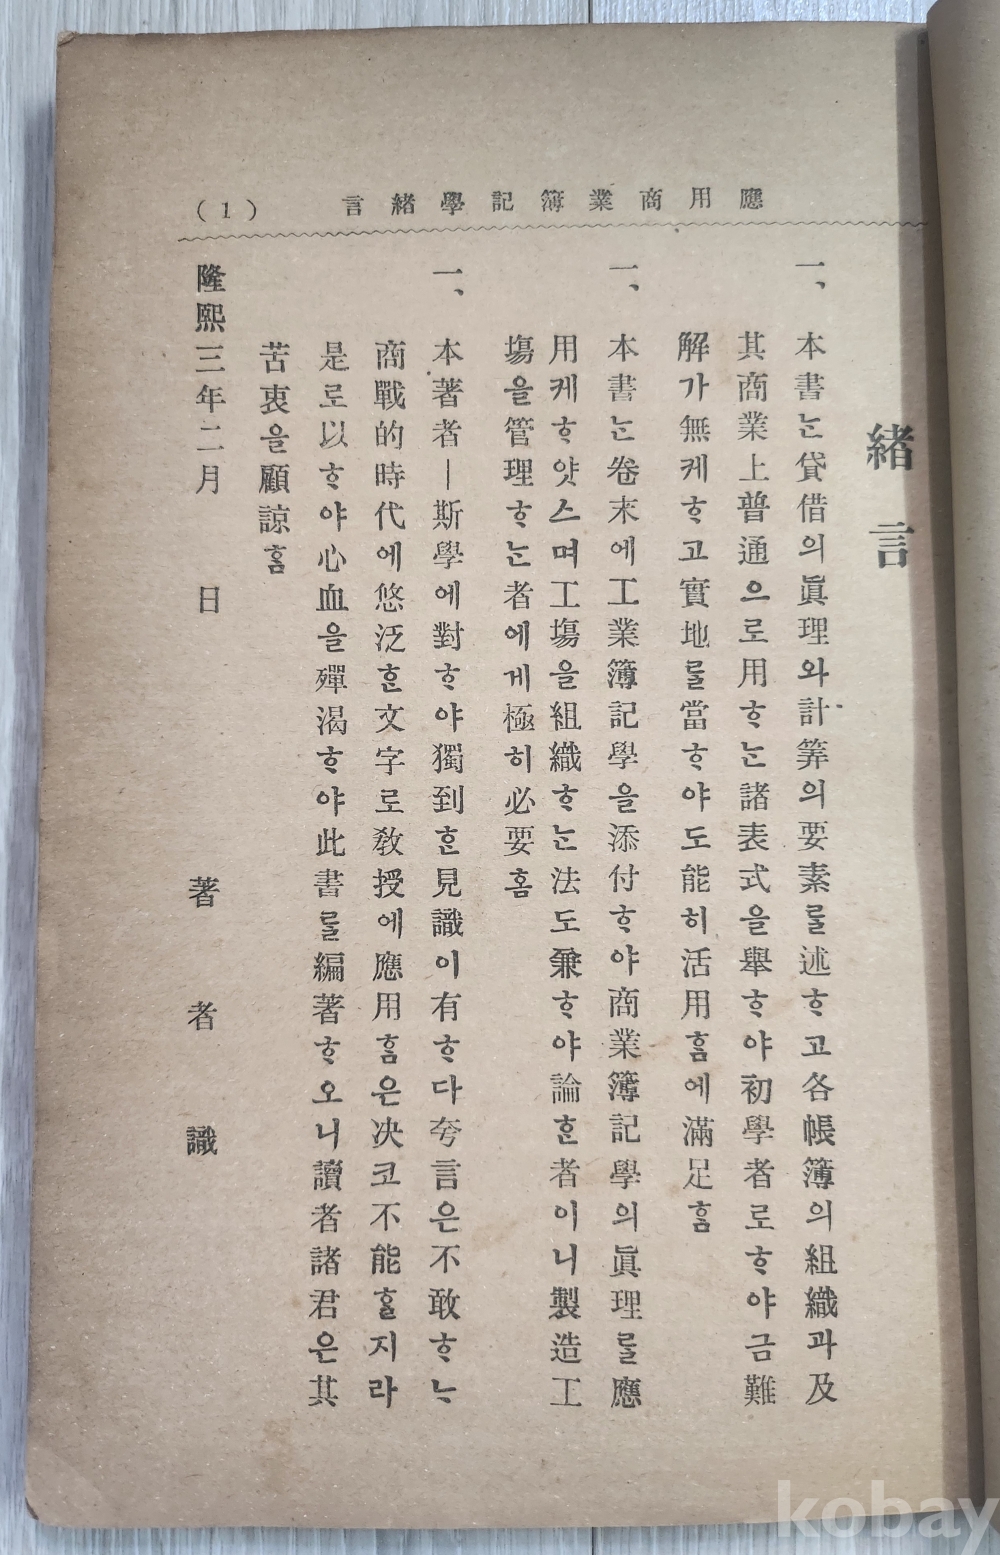 應用商業簿記學緒言
(1)
緒言
一、本書ᄂᆞᆫ貸借의眞理와計筭의要素ᄅᆞᆯ述ᄒᆞ고各帳簿의組織과及
其商業上普通으로用ᄒᆞᄂᆞᆫ諸表式을舉ᄒᆞ야初學者로ᄒᆞ야금難
解가無케ᄒᆞ고實地ᄅᆞᆯ當ᄒᆞ야도能히活用ᄒᆞᆷ에滿足ᄒᆞᆷ
一、本書ᄂᆞᆫ卷末에工業簿記學을添付ᄒᆞ야商業簿記學의眞理ᄅᆞᆯ應
用케ᄒᆞ얏스며工塲을組織ᄒᆞᄂᆞᆫ法도兼ᄒᆞ야論ᄒᆞᆫ者이니製造工
塲을管理ᄒᆞᄂᆞᆫ者에게極히必要ᄒᆞᆷ
一、本著者ㅣ斯學에對ᄒᆞ야獨到ᄒᆞᆫ見識이有ᄒᆞ다夸言은不敢ᄒᆞᄂᆞ
商戰的時代에悠泛ᄒᆞᆫ文字로敎授에應用ᄒᆞᆷ은决코不能ᄒᆞᆯ지라
是로以ᄒᆞ야心血을殫渴ᄒᆞ야此書ᄅᆞᆯ編著ᄒᆞ오니讀者諸君은其
苦衷을顧諒ᄒᆞᆷ
隆熙三年二月 日 著者識
kobay